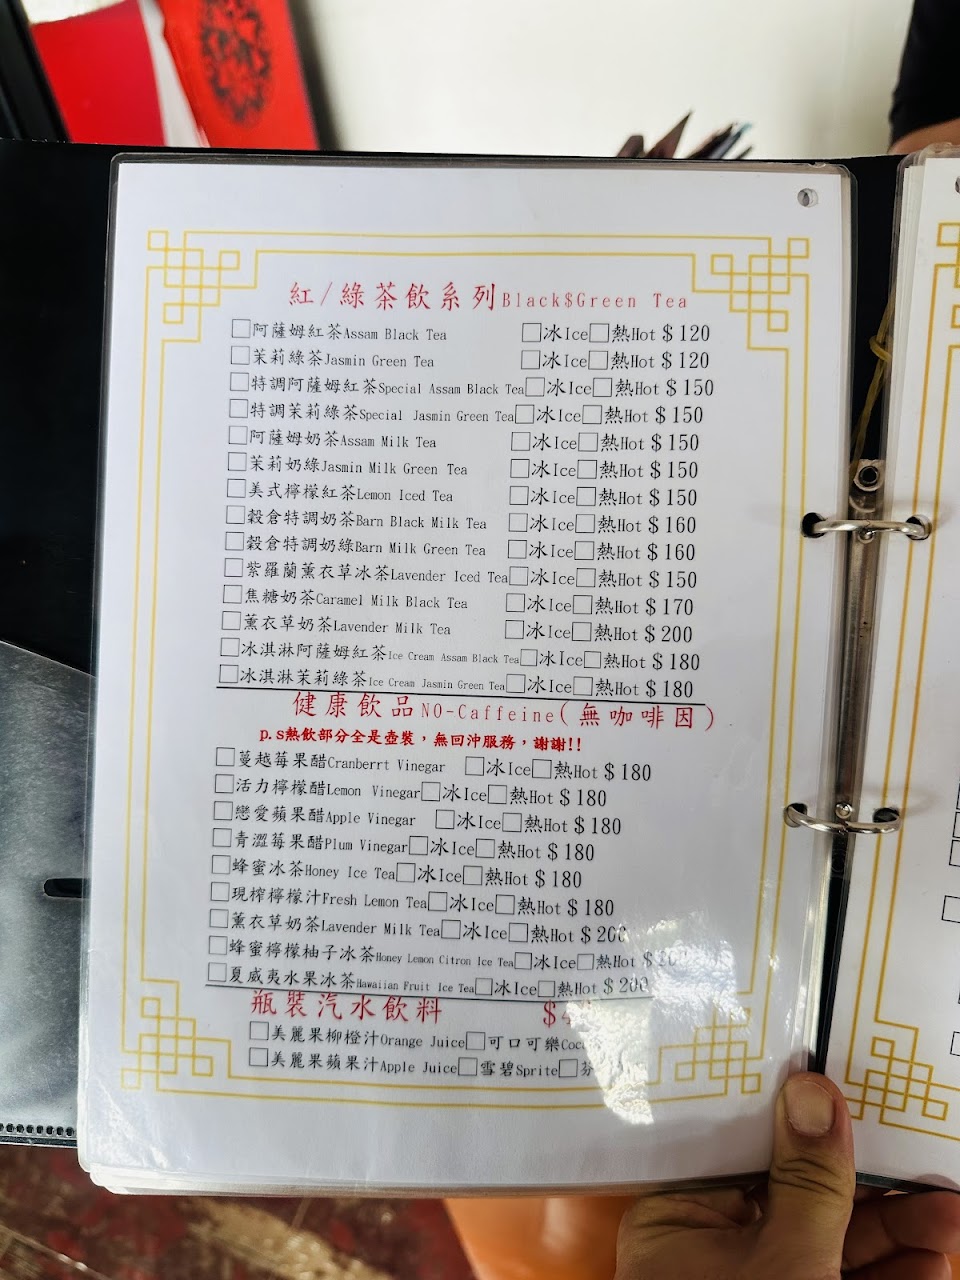 紅/綠茶飲系列Black$Green Tea
□阿薩姆紅茶Assam Black Tea □冰Ice□熱Hot $120
□茉莉綠茶Jasmin Green Tea □冰Ice□熱Hot $120
□特調阿薩姆紅茶Special Assam Black Tea□冰Ice□熱Hot $150
□特調茉莉綠茶Special Jasmin Green Tea□冰Ice□熱Hot $150
□阿薩姆奶茶Assam Milk Tea □冰Ice□熱Hot $150
□茉莉奶綠Jasmin Milk Green Tea □冰Ice□熱Hot $150
□美式檸檬紅茶Lemon Iced Tea □冰Ice□熱Hot $150
□穀倉特調奶茶Barn Black Milk Tea □冰Ice□熱Hot $160
□穀倉特調奶綠Barn Milk Green Tea □冰Ice□熱Hot $160
□紫羅蘭薰衣草冰茶Lavender Iced Tea□冰Ice□熱Hot $150
□焦糖奶茶Caramel Milk Black Tea □冰Ice□熱Hot $170
□薰衣草奶茶Lavender Milk Tea □冰Ice□熱Hot $200
□冰淇淋阿薩姆紅茶Ice Cream Assam Black Tea□冰Ice□熱Hot $180
□冰淇淋茉莉綠茶Ice Cream Jasmin Green Tea□冰Ice□熱Hot $180
健康飲品NO-Caffeine(無咖啡因)
p.s熱飲部分全是壺裝，無回沖服務，謝謝!!
□蔓越莓果醋Cranberrt Vinegar □冰Ice□熱Hot $180
□活力檸檬醋Lemon Vinegar□冰Ice□熱Hot $180
□戀愛蘋果醋Apple Vinegar □冰Ice□熱Hot $180
□青澀莓果醋Plum Vinegar□冰Ice□熱Hot $180
□蜂蜜冰茶Honey Ice Tea□冰Ice□熱Hot $180
□現榨檸檬汁Fresh Lemon Tea□冰Ice□熱Hot $180
□薰衣草奶茶Lavender Milk Tea□冰Ice□熱Hot $200
□蜂蜜檸檬柚子冰茶Honey Lemon Citron Ice Tea□冰Ice□熱Hot
□夏威夷水果冰茶Hawaiian Fruit Ice Tea□冰Ice□熱Hot $200
瓶裝汽水飲料
□美麗果柳橙汁Orange Juice□可口可樂
□美麗果蘋果汁Apple Juice□雪碧Sprite□芬